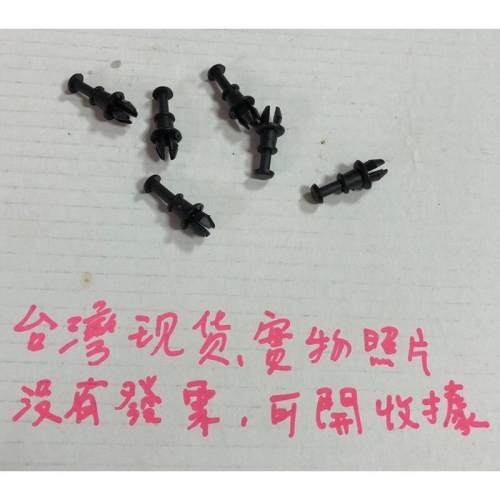 台灣现货、實物照片
沒有發票，可開收據